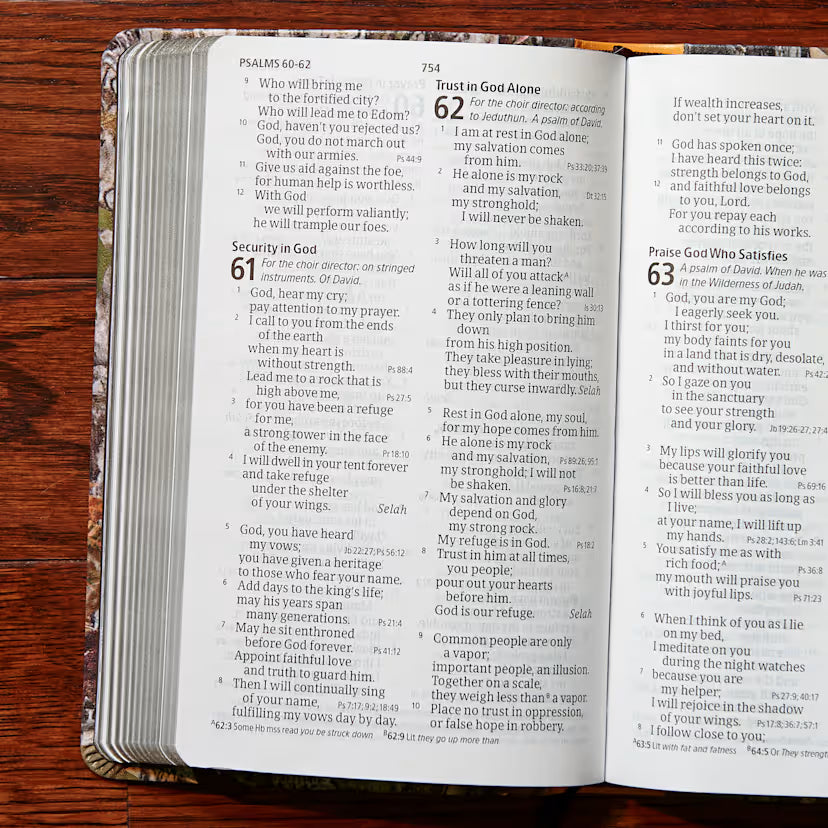 PSALMS 60-62
754
9 Who will bring me
to the fortified city?
Who will lead me to Edom?
10 God, haven't you rejected us?
God, you do not march out
with our armies. Ps 44:9
11 Give us aid against the foe,
for human help is worthless.
12 With God
we will perform valiantly;
he will trample our foes.
Security in God
61 For the choir director: on stringed
instruments. Of David.
1 God, hear my cry;
pay attention to my prayer.
2 I call to you from the ends
of the earth
when my heart is
without strength. Ps 88:4
Lead me to a rock that is
high above me, Ps 27:5
3 for you have been a refuge
for me,
a strong tower in the face
of the enemy. Pr 18:10
4 I will dwell in your tent forever
and take refuge
under the shelter
of your wings. Selah
5 God, you have heard
my vows; Jb 22:27; Ps 56:12
you have given a heritage
to those who fear your name.
6 Add days to the king's life;
may his years span
many generations. Ps 21:4
7 May he sit enthroned
before God forever. Ps 41:12
Appoint faithful love
and truth to guard him.
8 Then I will continually sing
of your name, Ps 7:17; 9:2; 18:49
fulfilling my vows day by day.
Trust in God Alone
62 For the choir director: according
to Jeduthun. A psalm of David.
1 I am at rest in God alone;
my salvation comes
from him. Ps 33:20; 37:39
2 He alone is my rock
and my salvation, Dt 32:15
my stronghold;
I will never be shaken.
3 How long will you
threaten a man?
Will all of you attack A
as if he were a leaning wall
or a tottering fence? Is 30:13
4 They only plan to bring him
down
from his high position.
They take pleasure in lying;
they bless with their mouths,
but they curse inwardly. Selah
5 Rest in God alone, my soul,
for my hope comes from him.
6 He alone is my rock
and my salvation, Ps 89:26; 95:1
my stronghold; I will not
be shaken. Ps 16:8; 21:7
7 My salvation and glory
depend on God,
my strong rock.
My refuge is in God. Ps 18:2
8 Trust in him at all times,
you people;
pour out your hearts
before him.
God is our refuge. Selah
9 Common people are only
a vapor;
important people, an illusion.
Together on a scale,
they weigh less than B a vapor.
10 Place no trust in oppression,
or false hope in robbery.
A 62:3 Some Hb mss read you be struck down B 62:9 Lit they go up more than
If wealth increases,
don't set your heart on it.
11 God has spoken once;
I have heard this twice:
strength belongs to God,
12 and faithful love belongs
to you, Lord.
For you repay each
according to his works.
Praise God Who Satisfies
63 A psalm of David. When he was
in the Wilderness of Judah.
1 God, you are my God;
I eagerly seek you.
I thirst for you;
my body faints for you
in a land that is dry, desolate,
and without water. Ps 42:2
2 So I gaze on you
in the sanctuary
to see your strength
and your glory. Jb 19:26-27; 27:4
3 My lips will glorify you
because your faithful love
is better than life. Ps 69:16
4 So I will bless you as long as
I live;
at your name, I will lift up
my hands. Ps 28:2; 143:6; Lm 3:41
5 You satisfy me as with
rich food; A Ps 36:8
my mouth will praise you
with joyful lips. Ps 71:23
6 When I think of you as I lie
on my bed,
I meditate on you
during the night watches
7 because you are
my helper; Ps 27:9; 40:17
I will rejoice in the shadow
of your wings. Ps 17:8; 36:7; 57:1
8 I follow close to you;
A 63:5 Lit with fat and fatness B 64:5 Or They strength